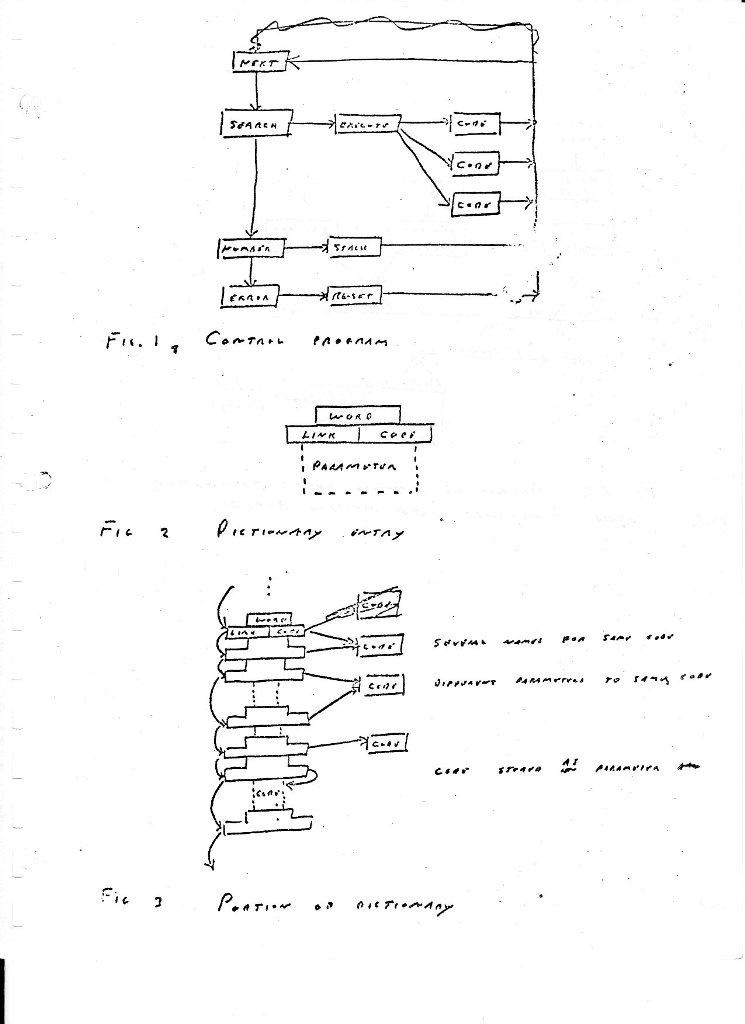 NEXT
SEARCH EXECUTE CODE
CODE
CODE
NUMBER STACK
ERROR RESET
FIG. 1, CONTROL PROGRAM
WORD
LINK CODE
PARAMETER
FIG 2 DICTIONARY ENTRY
CODE
WORD
LINK CODE
CODE SEVERAL NAMES FOR SAME CODE
CODE DIFFERENT PARAMETERS TO SAME CODE
CODE
CODE STORED AS PARAMETER
CODE
FIG 3 PORTION OF DICTIONARY